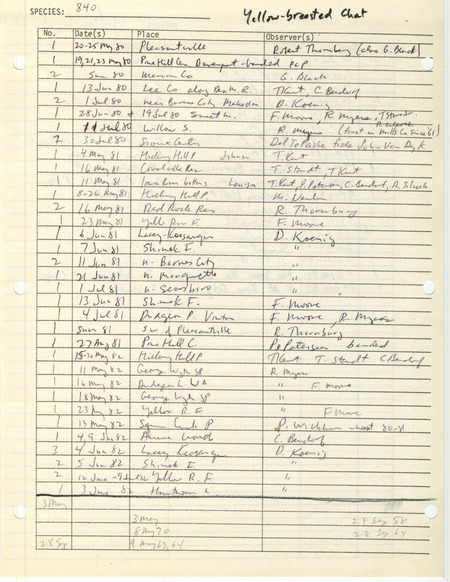 SPECIES: 840 Yellow-breasted Chat
No. Date(s) Place Observer(s)
1 20-25 May 80 Pleasantville Robert Thornburg (also G. Black)
1 19,21,23 May 80 Pine Hill Cem. Davenport-banded PCP
2 Sum 80 Marion Co G. Black
1 13 Jun 80 Lee Co along TKent, C. Bendorf
2 1 Jul 80 near Barnes City Mahaska D. Koenig
28 Jun 80 19 Jul 80 F. Moore, R Myers,
1 Jul 80 Willow S. R. Myers (first in Mills Co since 61)
2 30 Jul 80 Sioux Center fide John Van Dyk
1 4 May 81 Hickory Hill P Johnson T. Kent
1 16 May 81 Coralville Res T. Staudt, T Kent
1 11 May 81 Louisa T. Kent, P. Petersen, C. Bendorf,
1 8-26 May 81 Hickory Hill P
2 16 May 81 Red Rock Res R. Thornburg
1 23 May 81 Yellow River F F. Moore
1 6 Jun 81 Lacey-Keosauqua D. Koenig
1 7 Jun 81 Shimek F. "
2 11 Jun 81 n. Barnes City "
1 21 Jun 81 n. Marquette "
1 1 Jul 81 n. Searsboro "
1 13 Jun 81 Shimek F. F. Moore
1 4 Jul 81 Dudgeon P Vinton F. Moore, R. Myers
1 Sum 81 sw of Pleasantville R. Thornburg
1 27 Aug 81 Pine Hill C. Pe Petersen banded
1 15-30 May 82 Hickory Hill P TKent T. Staudt C Bendorf
1 11 May 82 George Wyth SP R. Myers
1 16 May 82 Dudgeon L WA " F. Moore
1 18 May 82 George Wyth SP "
1 23 May 82 Yellow R. F " F Moore
1 13 May 82 P. nest 80-81
1 4,9 Jun 82 Amana woods C. Bendorf
3 4 Jun 82 Lacey Keosauqua D. Koenig
2 5 Jun 82 Shimek F. "
2 Yellow R. F "
1 3 June 82 Hawthorn L "
3 May
3 May 27 Sep 58
8 May 70 28 Sep 64
28 Sep 9 May 63, 64